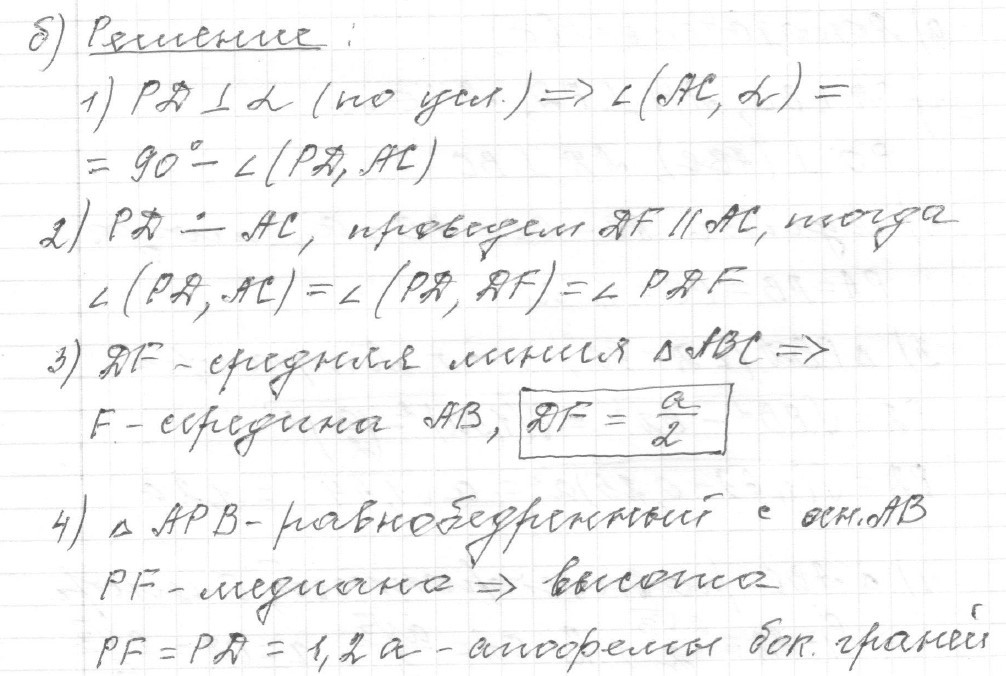 б) Решение:
1) PD ⊥ α (по усл.) => ∠(AC, α) =
= 90° − ∠(PD, AC)
2) PD ∸ AC, проведем DF || AC, тогда
∠(PD, AC) = ∠(PD, DF) = ∠ PDF
3) DF - средняя линия △ABC =>
F - середина AB, DF = a/2
4) △ APB - равнобедренный с осн. AB
PF - медиана => высота
PF = PD = 1,2a - апофемы бок. граней